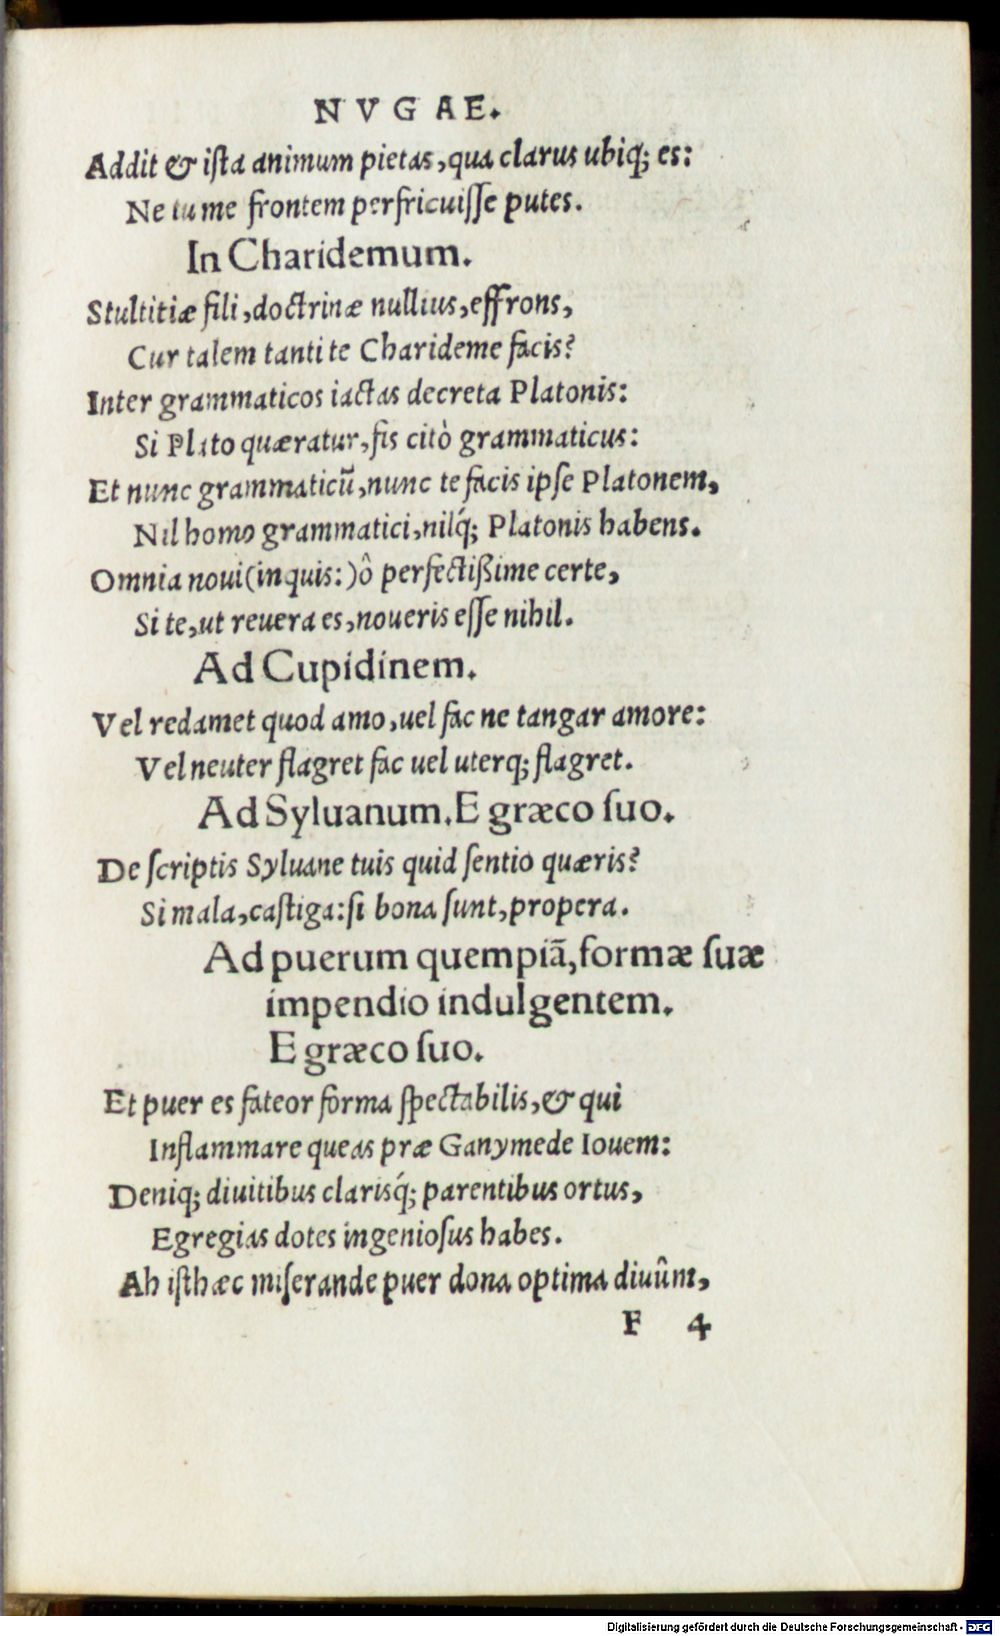 NVGAE.
Addit & ista animum pietas, qua clarus ubiq; es:
Ne tu me frontem perfricuisse putes.
In Charidemum.
Stultitiæ fili, doctrinæ nullius, effrons,
Cur talem tanti te Charideme facis?
Inter grammaticos iactas decreta Platonis:
Si Plato quæratur, fis citò grammaticus:
Et nunc grammaticũ, nunc te facis ipse Platonem,
Nil homo grammatici, nilq́; Platonis habens.
Omnia noui (inquis:) ô perfectißime certe,
Si te, ut reuera es, noueris esse nihil.
Ad Cupidinem.
Vel redamet quod amo, uel fac ne tangar amore:
Vel neuter flagret fac uel uterq; flagret.
Ad Syluanum. E græco suo.
De scriptis Syluane tuis quid sentio quæris?
Si mala, castiga: si bona sunt, propera.
Ad puerum quempiã, formæ suæ
impendio indulgentem.
E græco suo.
Et puer es fateor forma spectabilis, & qui
Inflammare queas præ Ganymede Iouem:
Deniq; diuitibus clarisq́; parentibus ortus,
Egregias dotes ingeniosus habes.
Ah isthæc miserande puer dona optima diuûm,
F 4
Digitalisierung gefördert durch die Deutsche Forschungsgemeinschaft - DFG